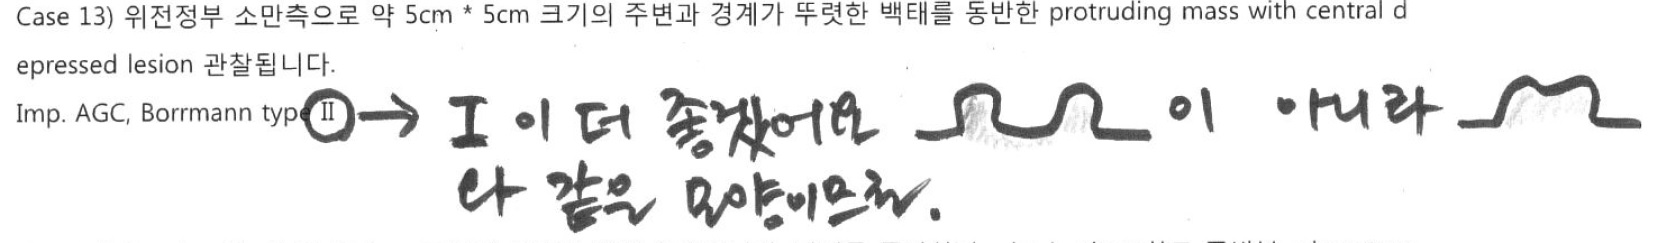 Case 13) 위전정부 소만측으로 약 5cm * 5cm 크기의 주변과 경계가 뚜렷한 백태를 동반한 protruding mass with central d
epressed lesion 관찰됩니다.
Imp. AGC, Borrmann type II → I 이 더 좋겠어요 이 아니라
와 같은 모양이므로.